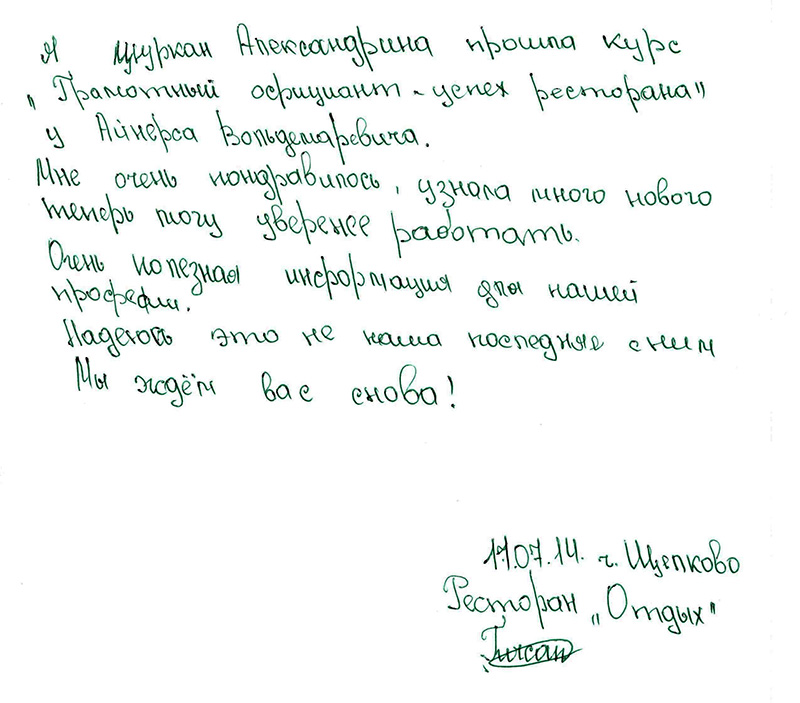 Я Цуркан Александрина прошла курс
"Грамотный официант - успех ресторана"
у Айнерса Вольдемаревича.
Мне очень пондравилось, узнала много нового
теперь могу уверенее работать.
Очень полезная информация для нашей
професии.
Надеюсь это не наша последняе с ним
Мы ждём вас снова!
17.07.14. г. Щелково
Ресторан "Отдых"